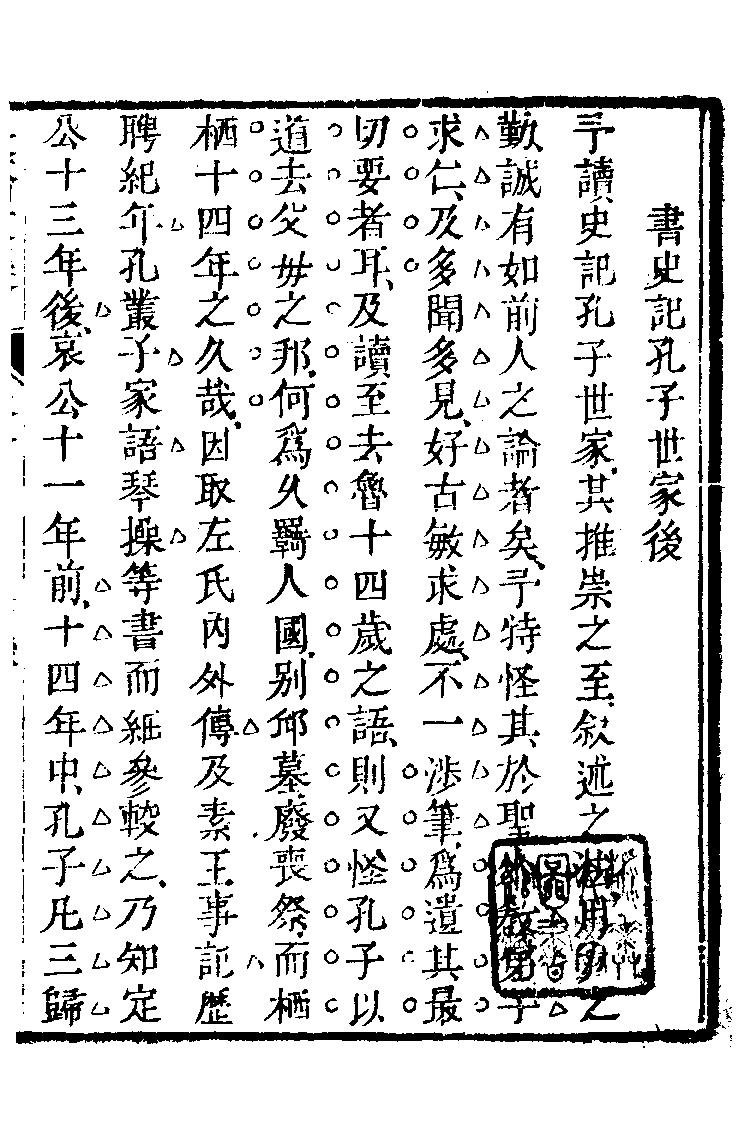 書史記孔子世家後
予讀史記孔子世家其推崇之至叙述之用之
勤誠有如前人之論者矣予特怪其於聖教弟子
求仁及多聞多見好古敏求處不一涉筆爲遺其最
切要者耳及讀至去魯十四歲之語則又怪孔子以
道去父母之邦何爲久羇人國別邱墓廢喪祭而栖
栖十四年之久哉因取左氏內外傳及素王事記歷
聘紀年孔叢子家語琴操等書而細參較之乃知定
公十三年後哀公十一年前十四年中孔子凡三歸